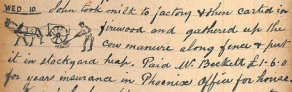 WED 10 John took milk to factory & then carted in
firewood and gathered up the
cow manure along fence & put
it in stockyard heap. Paid W. Beckett £1-6-0
for years insurance in Phoenix Office for house.